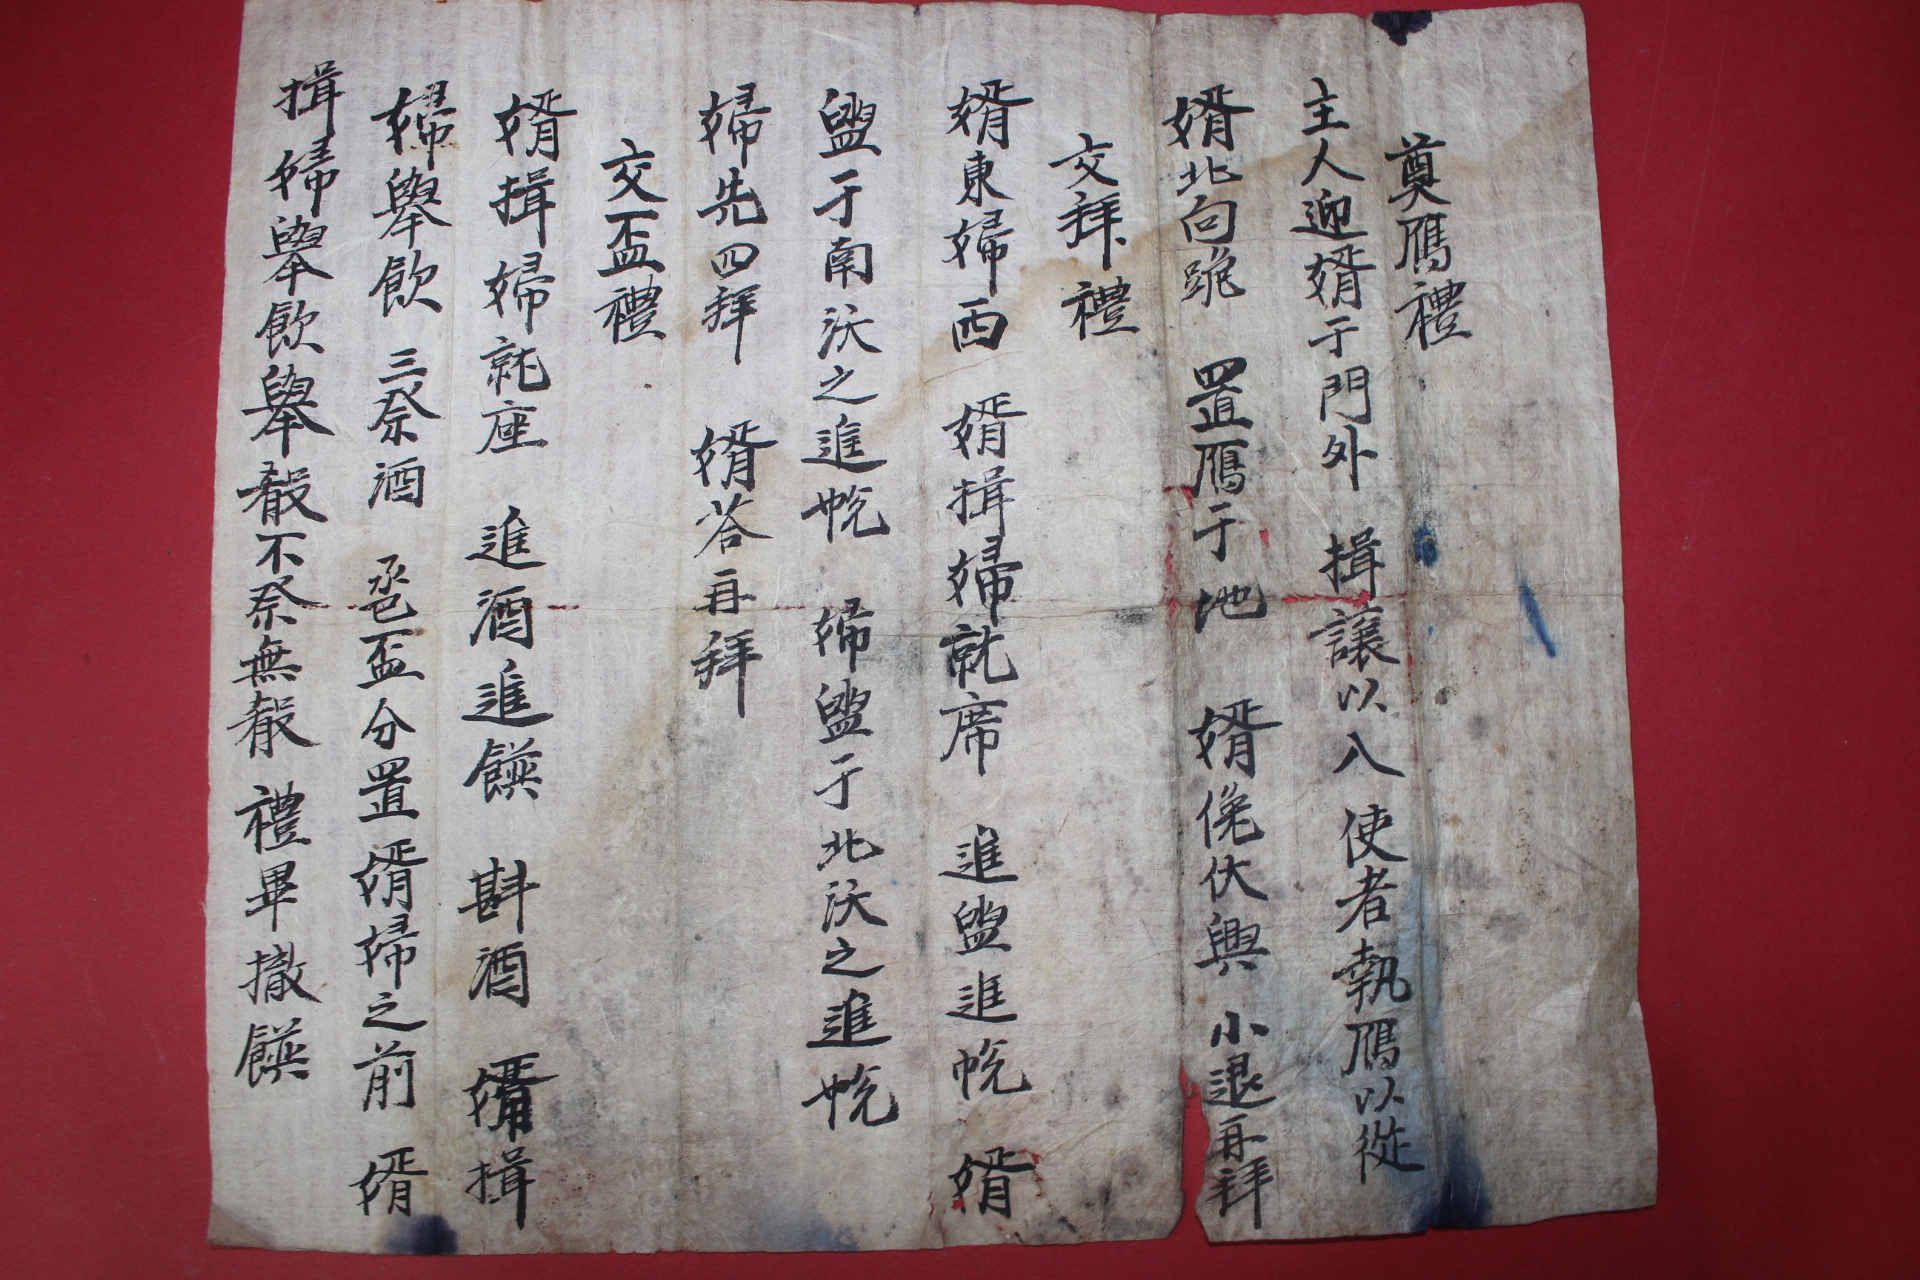 奠鴈禮
主人迎婿于門外 揖讓以入 使者執鴈以從
婿北向跪 置鴈于地 婿俛伏興 小退再拜
交拜禮
婿東婦西 婿揖婦就席 進盥進帨 婿
盥于南沃之進帨 婦盥于北沃之進帨
婦先四拜 婿答再拜
交盃禮
婿揖婦就座 進酒進饌 斟酒 婿揖
婦舉飮 三祭酒 巹盃分置婿婦之前 婿
揖婦舉飮舉殽不祭無殽 禮畢撤饌